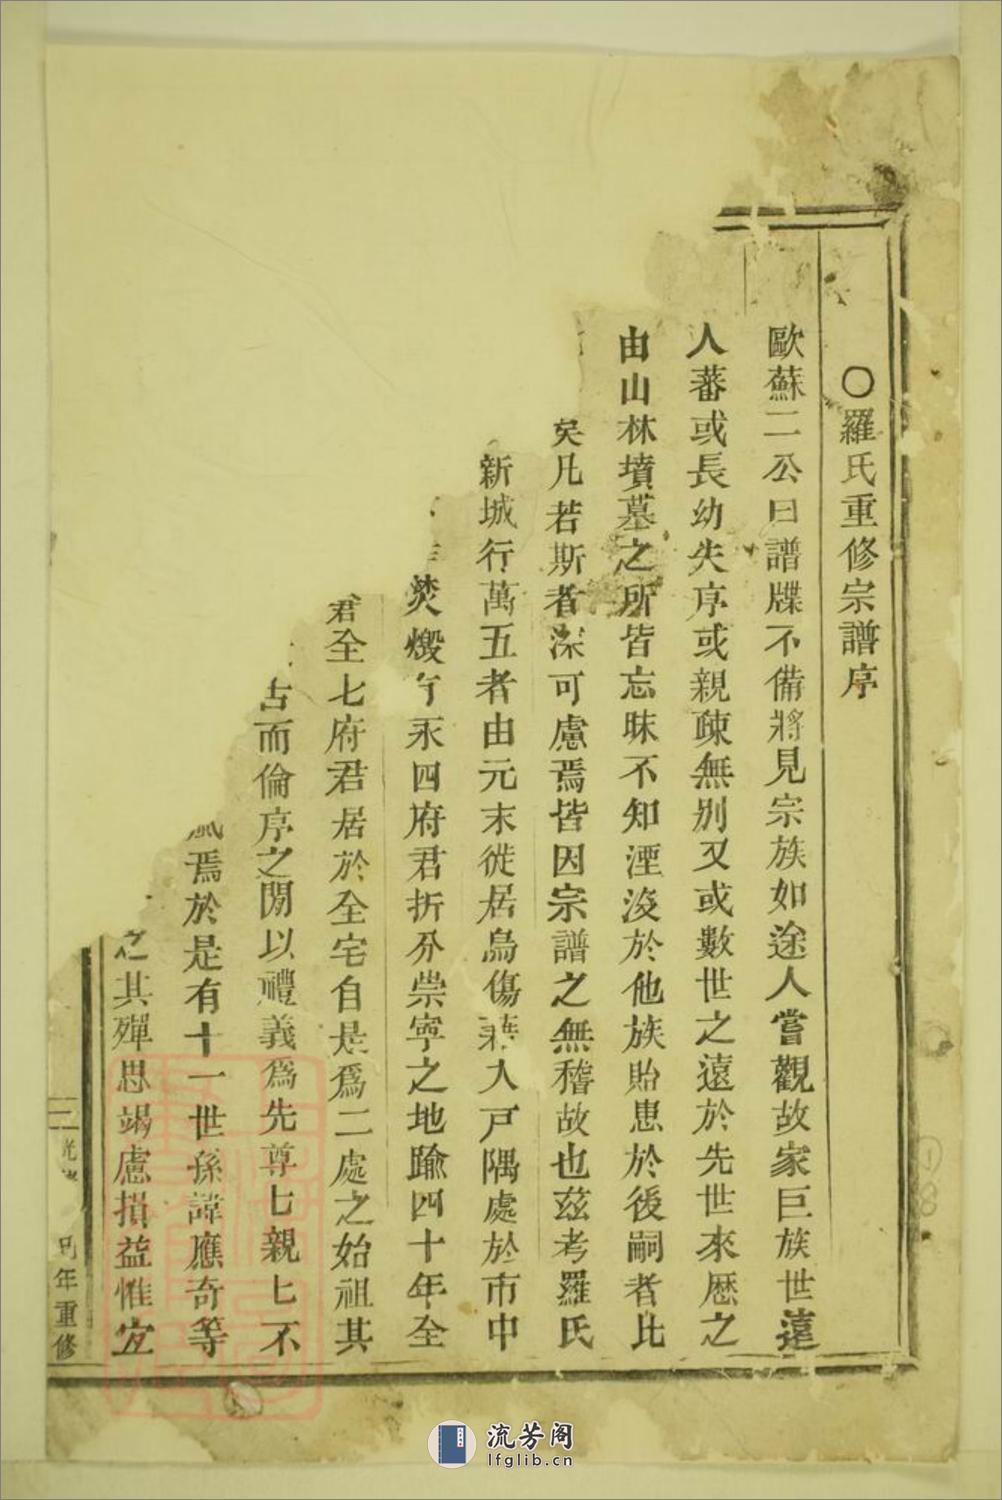 〇羅氏重修宗譜序
歐蘇二公曰譜牒不備將見宗族如途人嘗觀故家巨族世遠
人蕃或長幼失序或親疎無別又或數世之遠於先世來歷之
由山林墳墓之所皆忘昧不知湮沒於他族貽患於後嗣者比
矣凡若斯者深可慮焉皆因宗譜之無稽故也茲考羅氏
新城行萬五者由元末徙居烏傷 大戸隅處於市中
焚燬 永四府君折分崇寧之地踰四十年全
君全七府君居於全宅自是爲二處之始祖其
古而倫序之閒以禮義爲先尊七親七不
焉於是有十一世孫諱應奇等
之其殫思竭慮損益惟宜
年重修
流芳阁
lfglib.cn